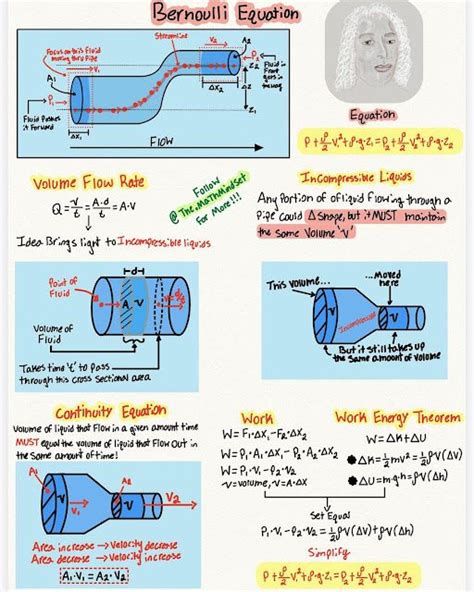 Bernoulli Equation
Streamline
Focus on this Fluid
moving thru Pipe
V₁
V₂
A₂
P₂
Z₂
Fluid in
Front
gers in
the way
A₁
P₁
ΔX₂
ΔZ
Z₁
Fluid Pushes
it Forward
ΔX₁
Flow
Equation
P₁+ρ/2V₁²+ρ·g·Z₁=P₂+ρ/2V₂²+ρ·g·Z₂
Volume Flow Rate
Q=V/t=A·d/t=A·V
Idea Brings light to Incompressible liquids
Follow
@The_MathMindset
For More!!!
Incompressible Liquids
Any Portion of a liquid flowing through a
Pipe could Δ shape, but it MUST maintain
the same Volume "V"
Point of
Fluid
d
A
V
V=d/t
Volume of
Fluid
Takes time 't' to pass
through this cross sectional area
This volume...
...Moved
here
V
Incompressible
V
But it still takes up
the same amount of volume
Continuity Equation
Volume of liquid that Flow in a given amount time
MUST equal the volume of liquid that Flow Out in
the same amount of time!
A₁
V
V₁
A₂
V
V₂
Area increase → Velocity decrease
Area decrease → Velocity increase
A₁·V₁ = A₂·V₂
Work
W=F₁·ΔX₁-F₂·ΔX₂
W=P₁·A₁·ΔX₁-P₂·A₂·ΔX₂
W=P₁·V₁-P₂·V₂
V=volume, V=A·ΔX
Work Energy Theorem
W=ΔK+ΔU
ΔK=½mv²=½ρV(ΔV)
ΔU=m·g·h=ρV(Δh)
Set Equal
P₁·V₁-P₂·V₂=½ρV(ΔV)+ρV(Δh)
Simplify
P₁+ρ/2V₁²+ρ·g·Z₁=P₂+ρ/2V₂²+ρ·g·Z₂